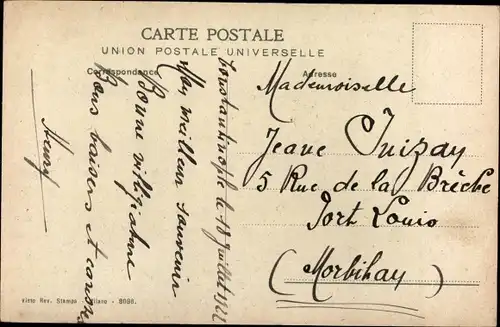 CARTE POSTALE
UNION POSTALE UNIVERSELLE
Correspondance
Adresse
Constantinople le 18 Juillet 1922
Mon meilleur souvenir
Bonne villégiature
Bons baisers et
Henry
Mademoiselle
Jeane
5 Rue de la Brèche
Port Louis
(Morbihay)
Rev. Stampa Milano - 8098.